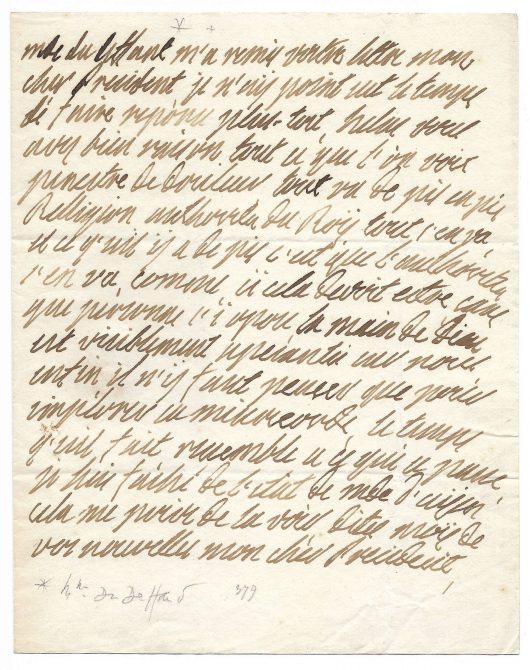 * +
mde du deffant m'a remis vostre lettre mon
cher president je n'ay point eut le temps
de faire reponce plus tost, helas vous
avez bien raison tout ce que l'on voit
penestre de douleur tout va de pis en pis
Relligion authorité du Roy tout s'en va
et ce qu'il y a de pis c'est que l'authorité
s'en va, comme si cela devoit estre sans
que personne s'i opose la main de dieu
est visiblement apesantie sur nous
enfin il n'y faut penser que pour
implorer sa misericorde le temps
qu'il fait resemble a ce qui ce passe
je suis faché de l'etat de mde
cela me prive de la voir dites moy de
vos nouvelles mon cher president
* Me Du Deffand 379